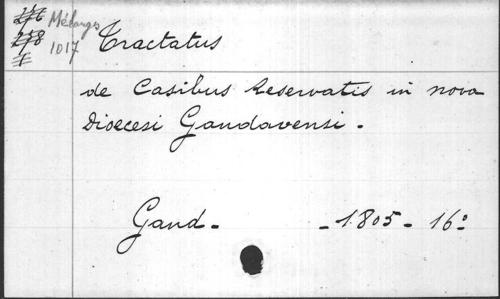 276 Mélanges
278 1017
Tractatus
de Casibus Reservatis in nova
Dioecesi Gandavensi.
Gand. - 1805 - 16º